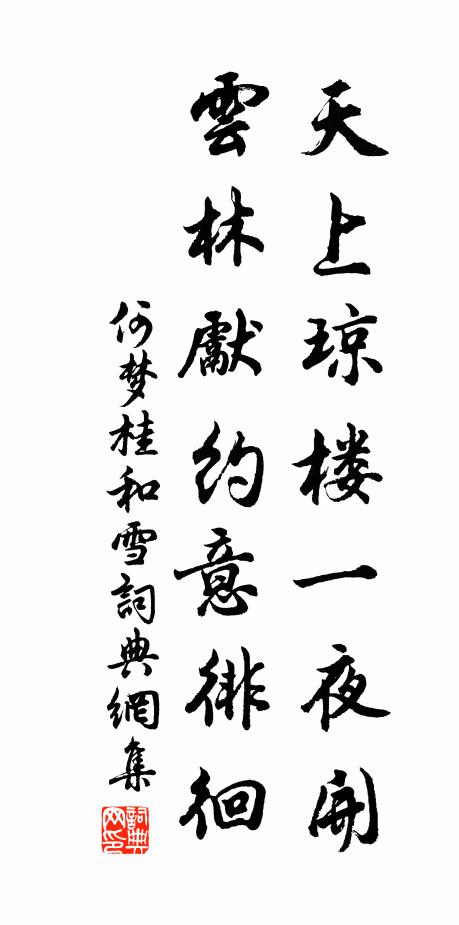 天上琼楼一夜開
雲林獻约意徘徊
何梦桂和雪詞典網集
詞典網印